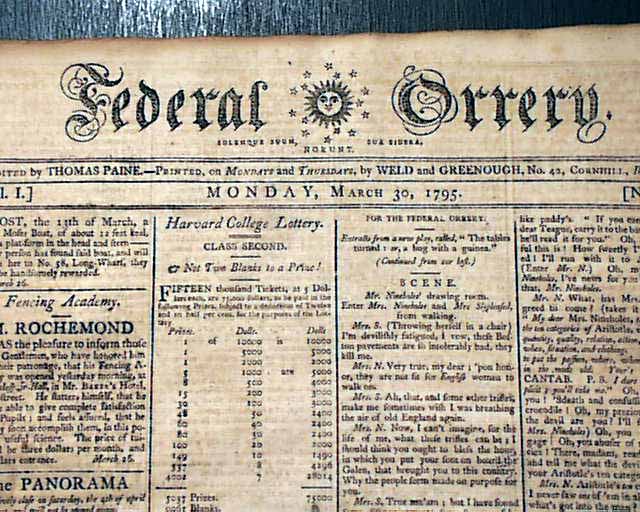 Federal Orrery.
SOLEMQUE SUUM, SUA SIDERA,
NORUNT.
ITED by THOMAS PAINE.—PRINTED, on MONDAYS and THURSDAYS, by WELD and GREENOUGH, No. 42, CORNHILL,
l. I.]
MONDAY, MARCH 30, 1795.
OST, the 13th of March, a
Moses Boat, of about 12 feet keel,
platform in the head and stern—
person has found said boat, and will
her to No. 58, Long-Wharf, they
be handsomely rewarded.
Fencing Academy.
M. ROCHEMOND
AS the pleasure to inform those
Gentlemen, who have honored him
their patronage, that his Fencing A-
opened yesterday
Hall, in Mr. Hotel,
street. He flatters, himself, that he
able to give complete satisfaction
Pupils; and feels assured, that he
soon accomplish them, in this
useful science. The price of tui-
be three dollars per month, and
lars entrance. March 26.
he PANORAMA
on saturday, the 4th of april
Harvard College Lottery.
CLASS SECOND.
Not Two Blanks to a Prize!
FIFTEEN thousand Tickets, at 5 Dol-
lars each, are 75,000 dollars, to be paid in the
following Prizes, subject to a deduction of Twelve
and an half per cent. for the purposes of the Lot-
tery
Prizes. Dolls. Dolls.
1 of 10000 is 10000
1 5000 5000
1 2000 2000
5 1000 are 5000
8 500 4000
15 200 3000
30 100 3000
48 50 2400
60 40 2400
80 30 2400
100 20 2000
149 10 1490
537 8 4296
4002 7 28014
5037 Prizes. 75000
Blanks.
FOR THE FEDERAL ORRERY.
Extracts from a new play, called, "The tables
turned; or, a hog with a guinea."
(Continued from our last.)
SCENE.
Mr. Nineholes' drawing room.
Enter Mrs. Nineholes and Mrs.
from walking.
Mrs. S. (Throwing herself in a chair)
I'm devilishly fatigued, I vow, these Bos-
ton pavements are so intolerably bad, they
kill me.
Mrs. N. Very true, my dear; 'pon hon-
or, they are not fit for English women to
walk on.
Mrs. S. Ah, that, and some other trifles,
make me sometimes wish I was breathing
the air of old England again.
Mrs. N. Now, I can't imagine, for the
life of me, what these trifles can be; I
should think you ought to bless the hour
in which you put your foot on board the
Galen, that brought you to this country.
Why the people seem made on purpose for
you.
Mrs. S. True ma'am; but I have found
like paddy's. "If you
dear Teague, carry it to the
he'll read it for you." Oh
ful this is! How
ed! I'll run with it to
(Enter Mr. N.) Oh,
Nineholes, I've news for
Mr. Nineholes.
Mr. N. What, has Mer-
greed to come! (takes it
My dear Mrs. Nineholes,
the ten categories of Aristotle,
quantity, quality, relation, action
CANTAB. P. S. I
you! "death and
crocodile! Oh, my precious
the devil are you! I'll
Mrs. Nineholes) Oh, you
gage! Oh, you
cies! There, madam,
and tell me what the
your Aristotle's ten
Mrs. N. Aristotle's ten
I never saw one of 'em in
what's got into the man!